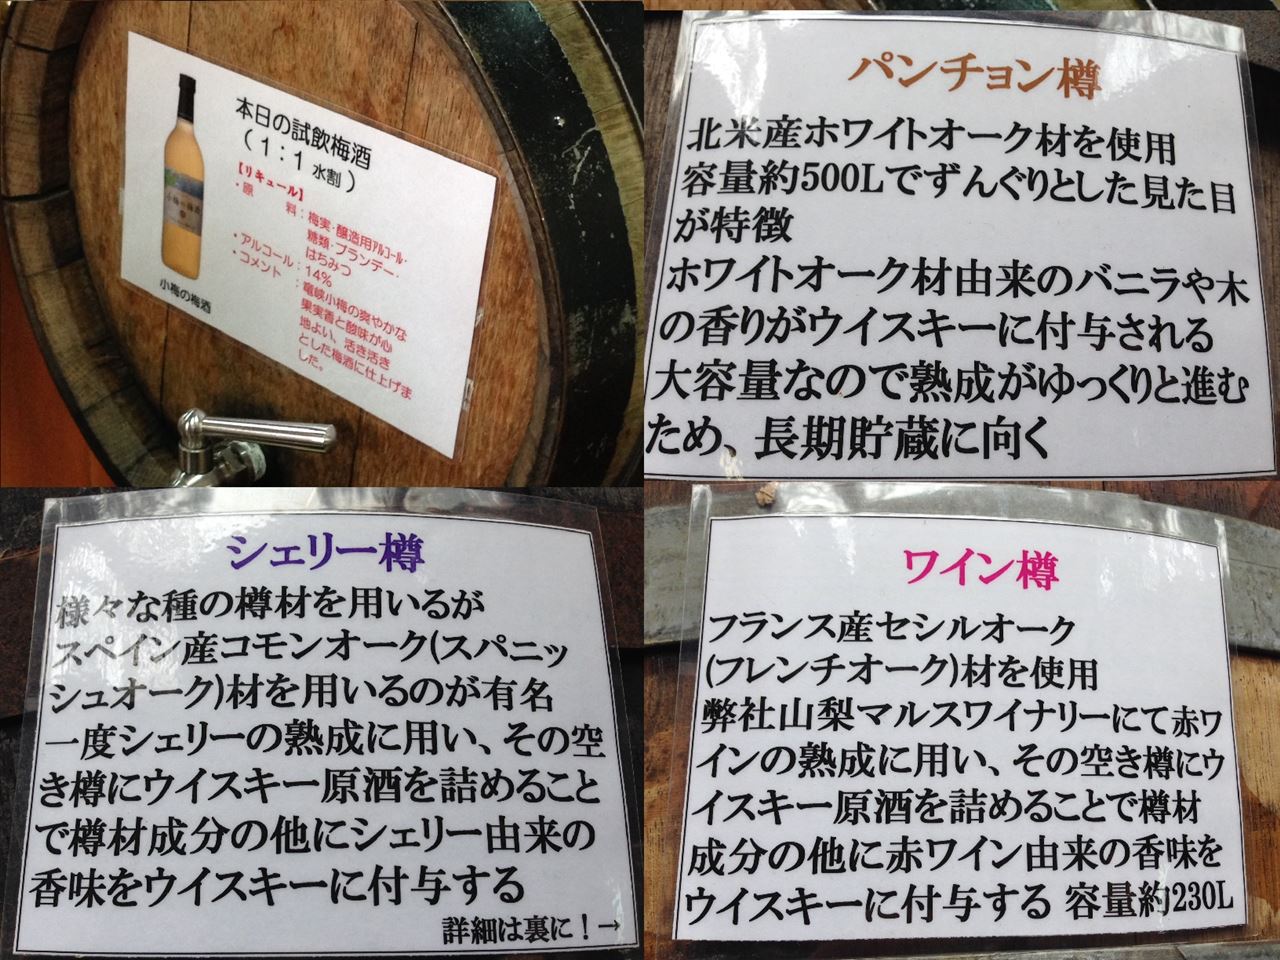 本日の試飲梅酒
(1:1 水割)
【リキュール】
・原　　料：梅実・醸造用アルコール・
糖類・ブランデー・
はちみつ
・アルコール：14%
・コメント：竜峡小梅の爽やかな
果実香と酸味が心
地よい、活き活き
とした梅酒に仕上げま
した。
小梅の梅酒
パンチョン樽
北米産ホワイトオーク材を使用
容量約500Lでずんぐりとした見た目
が特徴
ホワイトオーク材由来のバニラや木
の香りがウイスキーに付与される
大容量なので熟成がゆっくりと進む
ため、長期貯蔵に向く
シェリー樽
様々な種の樽材を用いるが
スペイン産コモンオーク(スパニッ
シュオーク)材を用いるのが有名
一度シェリーの熟成に用い、その空
き樽にウイスキー原酒を詰めること
で樽材成分の他にシェリー由来の
香味をウイスキーに付与する
詳細は裏に！→
ワイン樽
フランス産セシルオーク
(フレンチオーク)材を使用
弊社山梨マルスワイナリーにて赤ワ
インの熟成に用い、その空き樽にウ
イスキー原酒を詰めることで樽材
成分の他に赤ワイン由来の香味を
ウイスキーに付与する 容量約230L